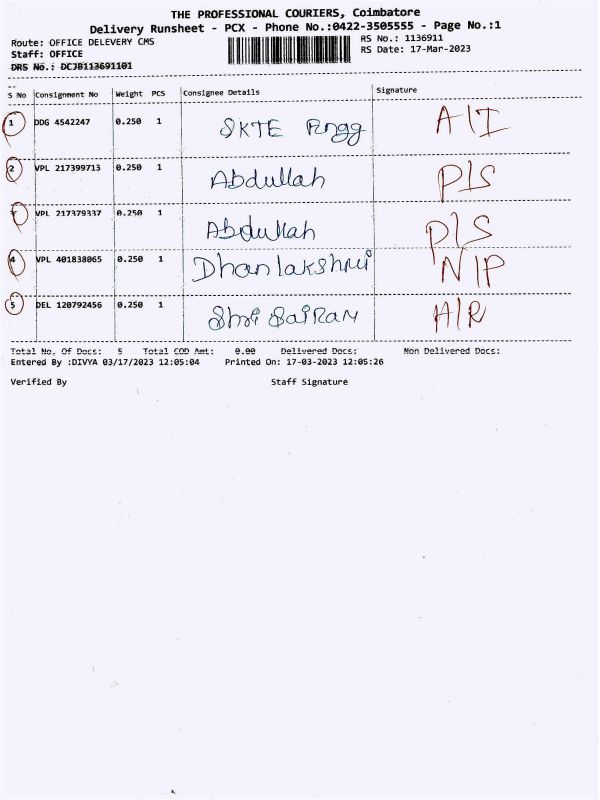 THE PROFESSIONAL COURIERS, Coimbatore
Delivery Runsheet - PCX - Phone No.:0422-3505555 - Page No.:1
Route: OFFICE DELEVERY CMS RS No.: 1136911
Staff: OFFICE RS Date: 17-Mar-2023
DRS No.: DCJB113691101
S No Consignment No Weight PCS Consignee Details Signature
1 DDG 4542247 0.250 1 SKTE Engg A/I
2 VPL 217399713 0.250 1 Abdullah P/S
VPL 217379337 0.250 1 Abdullah P/S
4 VPL 401838065 0.250 1 Dhanlakshmi N/P
5 DEL 120792456 0.250 1 Shri SaiRam A/R
Total No. Of Docs: 5 Total COD Amt: 0.00 Delivered Docs: Non Delivered Docs:
Entered By :DIVYA 03/17/2023 12:05:04 Printed On: 17-03-2023 12:05:26
Verified By Staff Signature